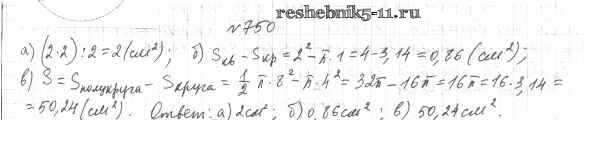 reshebnik5-11.ru
№750
а) (2·2):2=2(см²); б) Sкв - Sкр = 2² - π·1 = 4-3,14 = 0,86 (см²);
в) S = Sполукруга - Sкруга = 1/2 π·8² - π·4² = 32π - 16π = 16π = 16·3,14 =
= 50,24 (см²). Ответ: а) 2см²; б) 0,86см²; в) 50,24см².